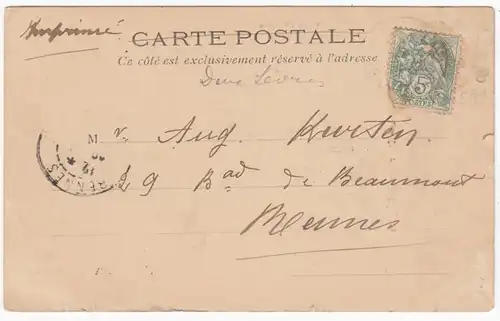 Imprimé
CARTE POSTALE
Ce côté est exclusivement réservé à l'adresse
Deux Sèvres
5c
POSTES
Mr. Aug. Kursten,
29 Bad de Beaumont
Rennes
RENNES